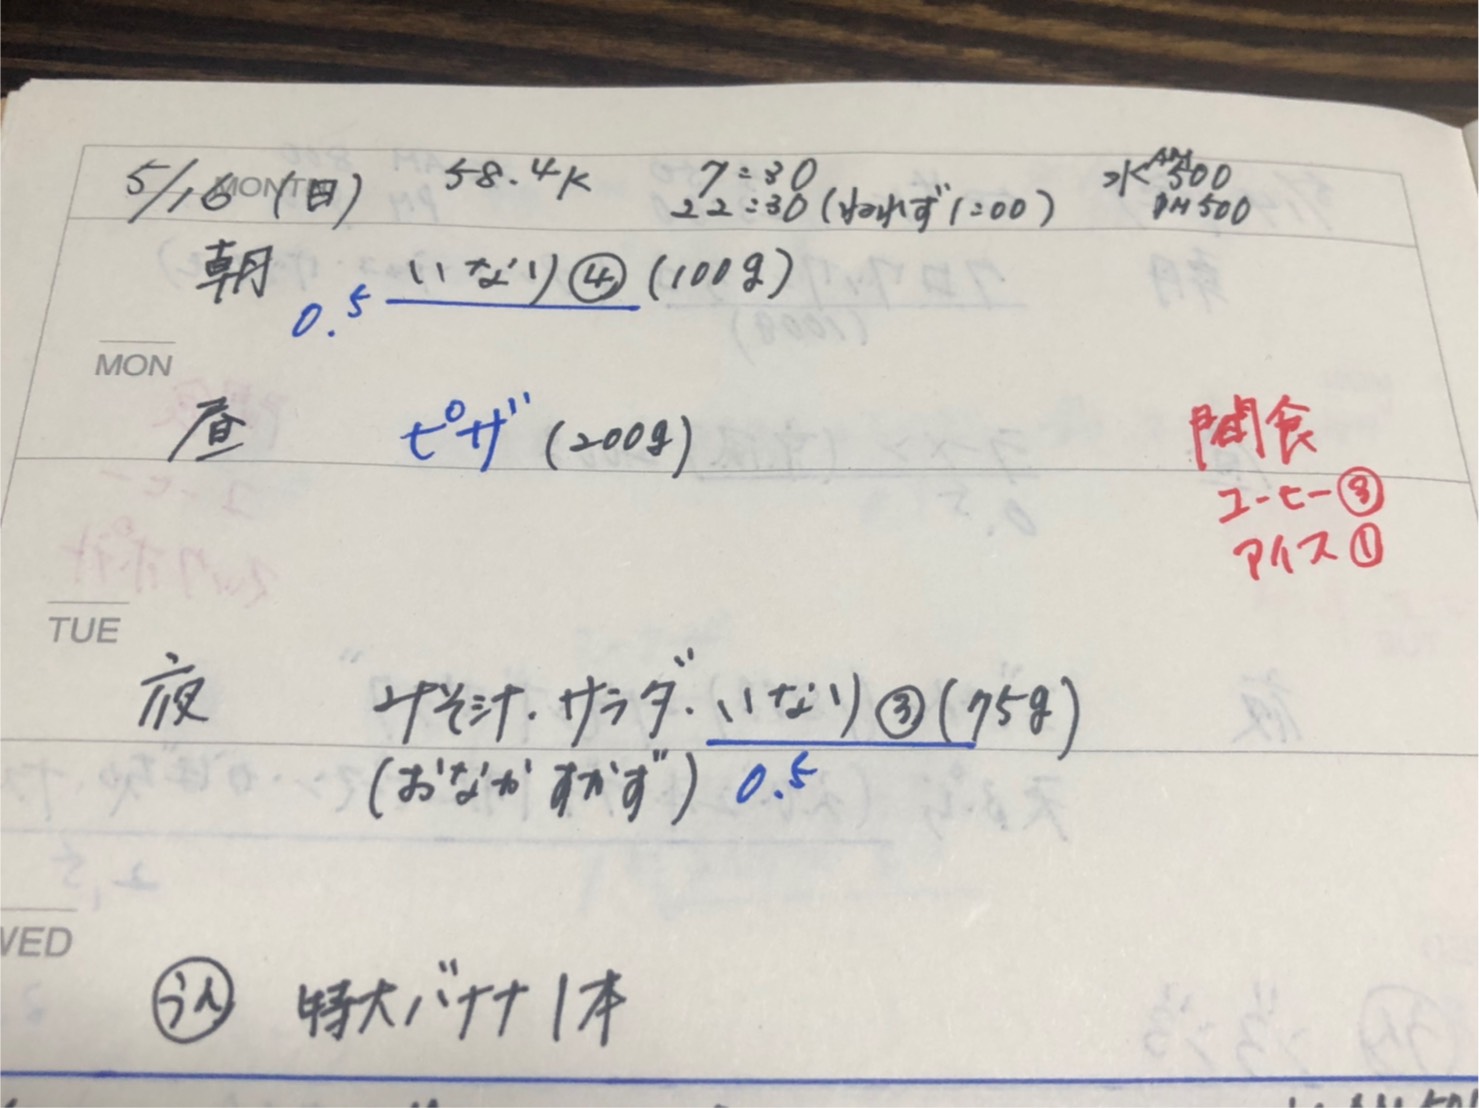 5/16(日) 58.4K 7:30 水 AM 500
MONTH 22:30(ねれず1:00) PM 500
朝 いなり④(100g)
0.5
MON
昼 ピザ(200g) 間食
コーヒー③
アイス①
TUE
夜 みそ汁・サラダ・いなり③(75g)
(おなかすかず) 0.5
WED
うん 特大バナナ1本